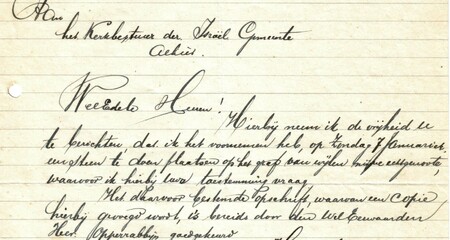 Aan
het Kerkbestuur der Israël Gemeente
alhier.
WelEdele Heeren!
Hierbij neem ik de vrijheid U
te berichten, dat ik het voornemen heb, op Zondag 7 Januari a.s.
een steen te doen plaatsen op het graf van wijlen mijne echtgenoote,
waarvoor ik hierbij uwe toestemming vraag.
Het daarvoor bestemde opschrift, waarvan een copie
hierbij gevoegd wordt, is bereids door den WelEerwaarden
Heer Opperrabbijn goedgekeurd